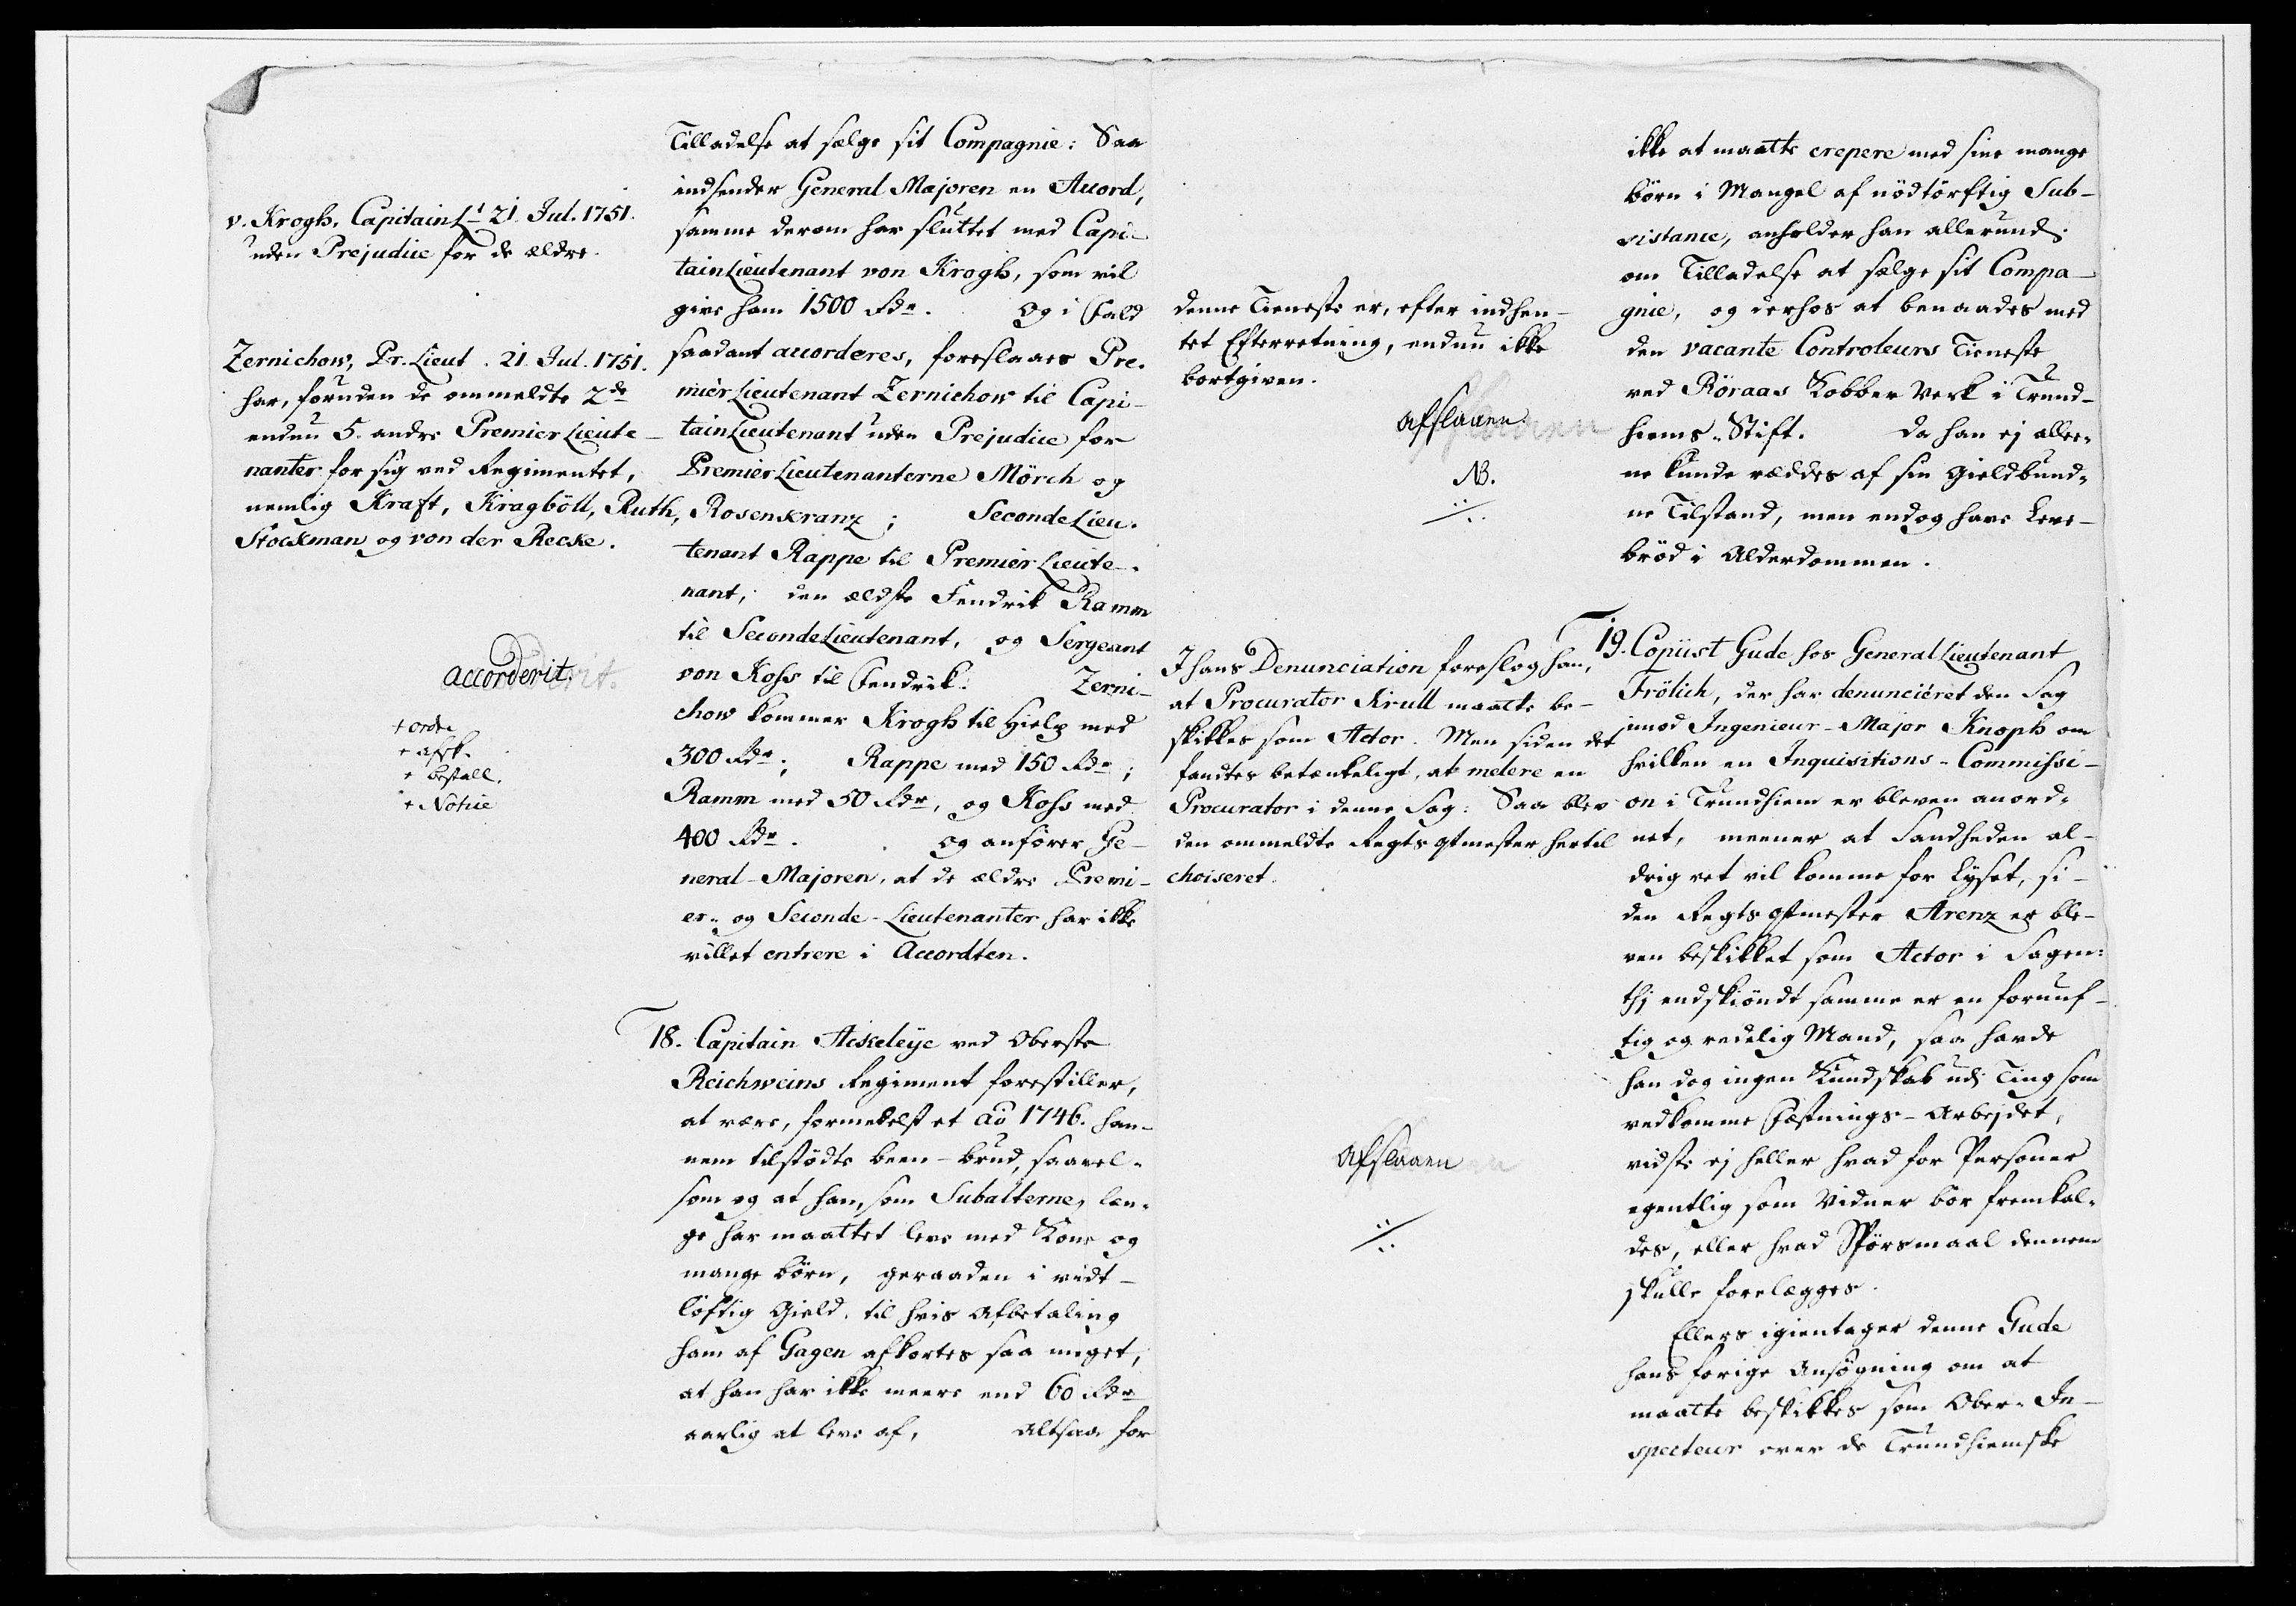 v. Krogh, Capitain Lt 21. Jul. 1751.
uden Prejudice for de ældre.
Zernichow, Pr. Lieut. 21. Jul. 1751.
har, foruden de ommeldte 2de
endnu 5. andre Premier Lieute-
nanter for sig ved Regimentet,
nemlig Kraft, Kragböll, Ruth,
Stockman og von der Recke.
accorderit.
+ ordre
+ afsk.
+ bestall.
+ Notice
Tilladelse at sælge sit Compagnie: Saa
indsender General Majoren en Accord,
samme derom har sluttet med Capi-
tain Lieutenant von Krogh, som vil
give ham 1500 Rdr. Og i Fald
saadant accorderes, foreslaaes Pre-
mier Lieutenant Zernichow til Capi-
tain Lieutenant uden Prejudice for
Premier Lieutenanterne Mörch og
Rosenkranz; Seconde Lieu-
tenant Rappe til Premier Lieute-
nant; den ældste Fendrik Ramm
til Seconde Lieutenant, og Sergeant
von Koss til Fendrik. Zerni-
chow kommer Krogh til Hielp med
300 Rdr; Rappe med 150 Rdr;
Ramm med 50 Rdr, og Koss med
400 Rdr. Og anfører Ge-
neral-Majoren, at de ældre Premi-
er- og Seconde-Lieutenanter har ikke
villet entrere i Accordten.
18. Capitain Ackeleÿe ved Oberste
Reichweins Regiment forestiller,
at være, formedelst et Aō 1746. han-
nem tilstødte been-brud, saavel-
som og at han, som Subalterne, læn-
ge har maattet leve med Kone og
mange börn, geraaden i vidt-
løftig Gield, til hvis Afbetaling
ham af Gagen afkortes saa meget,
at han har ikke meere end 60 Rdr
aarlig at leve af, Altsaa for
denne Tieneste er, efter indhen-
tet Efterretning, endnu ikke
bortgiven.
Afslaaen
NB.
I hans Denunciation foreslog han,
at Procurator Krull maatte be-
skikkes som Actor. Men siden det
fandtes betænkeligt, at melere en
Procurator i denne Sag: Saa blev
den ommeldte Regts qtmester hertil
choiseret.
Afslaaen
ikke at maatte crepere med sine mange
börn i Mangel af nödtörftig Sub-
sistance, anholder han allerund:
om Tilladelse at sælge sit Compa-
gnie, og derhos at benaades med
den vacante Controleurs Tieneste
ved Röraas Kobber Verk i Trund-
hiems-Stift. Da han ej allee-
ne kunde reddes af sin gieldbund-
ne Tilstand, men endog have Leve-
bröd i Alderdommen.
19. Copiist Gude hos General Lieutenant
Frölich, der har denuncieret den Sag
imod Ingenieur-Major Knoph om
hvilken en Inquisitions-Commissi-
on i Trundhiem er bleven anord-
net, meener at Sandheden al-
drig ret vil komme for Lyset, si-
den Regts qtmester Arenz er ble-
ven beskikket som Actor i Sagen:
thj endskiöndt samme er en fornuf-
tig og redelig Mand, saa havde
han dog ingen Kundskab udi Ting som
vedkomme Fæstnings-Arbejdet,
vidste ej heller hvad for Personer
egentlig som Vidner bör fremkal-
des, eller hvad Spörsmaal dennem
skulle forelægges.
Ellers igientager denne Gude
hans forige Ansøgning om at
maatte beskikkes som Ober-In-
specteur over de Trundhiemske